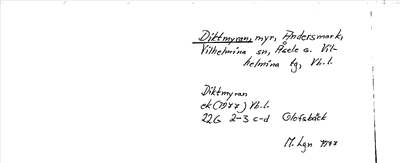 Diktmyran, myr, Andersmark,
Vilhelmina sn, Åsele o. Vil-
helmina tg, Vb.l.
Diktmyran
ek (1977) Vb.l.
22G 2-3 c-d Olofsbäck
M. Lgn 1977